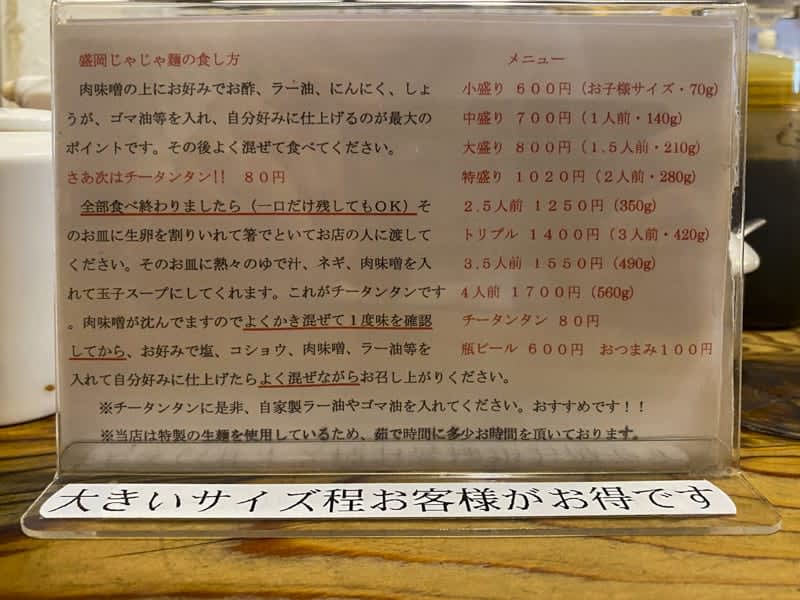 盛岡じゃじゃ麺の食し方
肉味噌の上にお好みでお酢、ラー油、にんにく、しょ
うが、ゴマ油等を入れ、自分好みに仕上げるのが最大の
ポイントです。その後よく混ぜて食べてください。
さあ次はチータンタン!! ８０円
全部食べ終わりましたら（一口だけ残してもＯＫ）そ
のお皿に生卵を割りいれて箸でといてお店の人に渡して
ください。そのお皿に熱々のゆで汁、ネギ、肉味噌を入
れて玉子スープにしてくれます。これがチータンタンです
。肉味噌が沈んでますのでよくかき混ぜて１度味を確認
してから、お好みで塩、コショウ、肉味噌、ラー油等を
入れて自分好みに仕上げたらよく混ぜながらお召し上がりください。
※チータンタンに是非、自家製ラー油やゴマ油を入れてください。おすすめです！！
※当店は特製の生麺を使用しているため、茹で時間に多少お時間を頂いております。
メニュー
小盛り ６００円（お子様サイズ・70g）
中盛り ７００円（１人前・140g）
大盛り ８００円（１.５人前・210g）
特盛り １０２０円（２人前・280g）
２.５人前 １２５０円（350g）
トリプル １４００円（３人前・420g）
３.５人前 １５５０円（490g）
４人前 １７００円（560g）
チータンタン ８０円
瓶ビール ６００円 おつまみ１００円
大きいサイズ程お客様がお得です